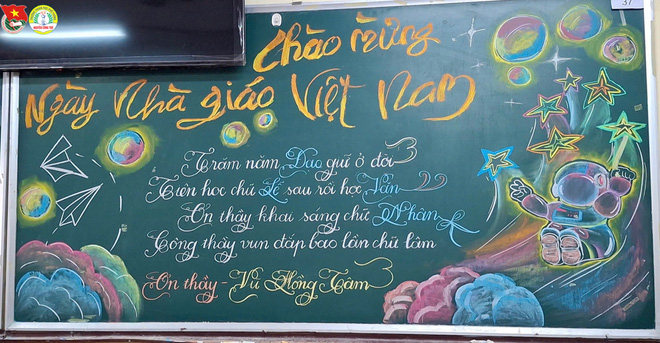 Chào mừng
Ngày Nhà giáo Việt Nam
Trăm năm Đạo giữ ở đời
Tiên học chữ Lễ sau rồi học Văn
Ơn thầy khai sáng chữ Nhân
Công thầy vun đắp bao lần chữ tâm
Ơn thầy - Vũ Hồng Tâm